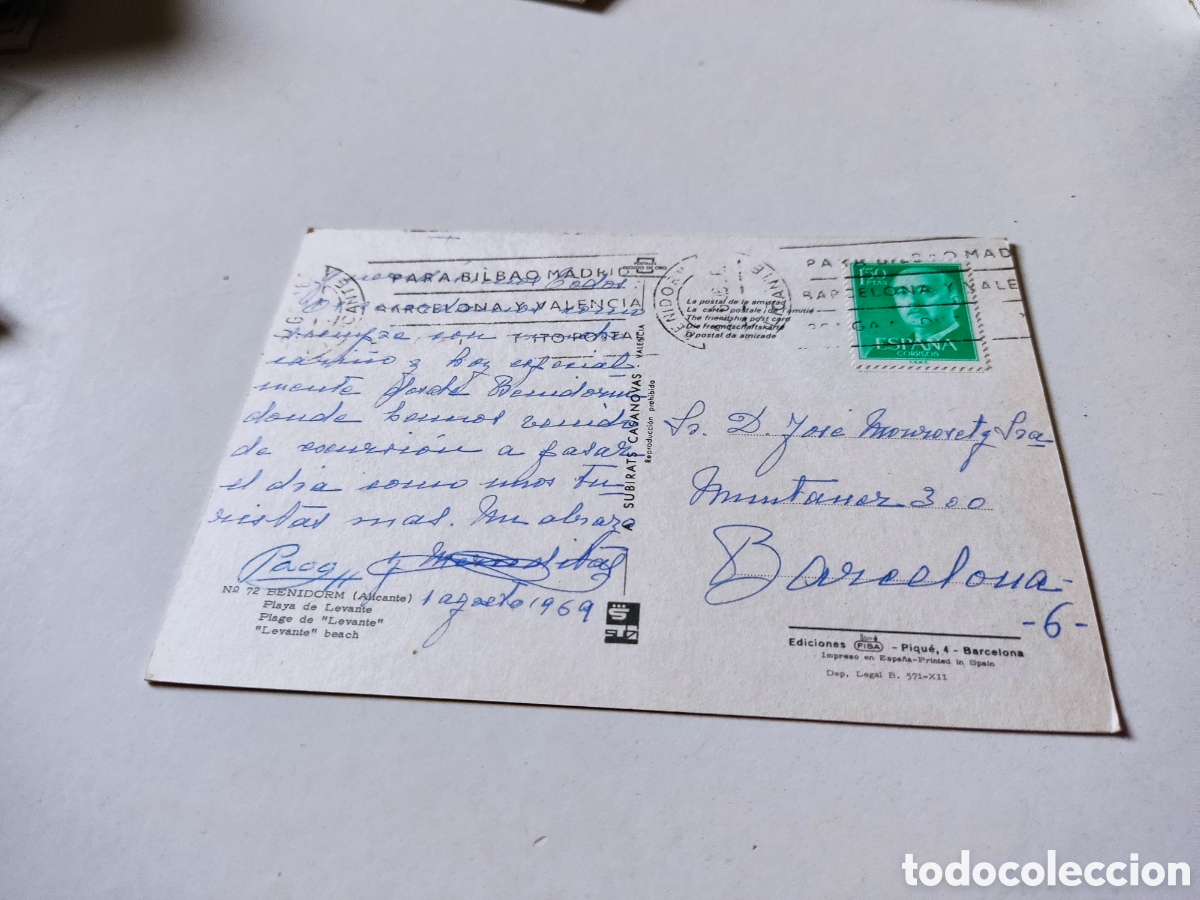 PARA BILBAO MADRID
BARCELONA Y VALENCIA
siempre con mucho
cariño y hoy especial
mente desde Benidorm
donde hemos venido
de excursión a pasar
el dia como unos tu
ristas mas. Un abrazo
Paco y Mercedes
1 agosto 1969
Nº 72 BENIDORM (Alicante)
Playa de Levante
Plage de "Levante"
"Levante" beach
A. SUBIRATS CASANOVAS VALENCIA
Reproducción prohibida
BENIDORM
ALICANTE
La postal de la amistad
La carte postale de l'amitié
The friendship post card
Die Freundschaftskarte
O postal da amizade
PARA BILBAO MAD
BARCELONA Y VALE
1'50 PTAS
ESPAÑA
CORREOS
Sr. D. José Monroset y Sra
Muntaner 300
Barcelona-
-6-
Ediciones FISA - Piqué, 4 - Barcelona
Impreso en España-Printed in Spain
Dep. Legal B. 571-XII
todocoleccion